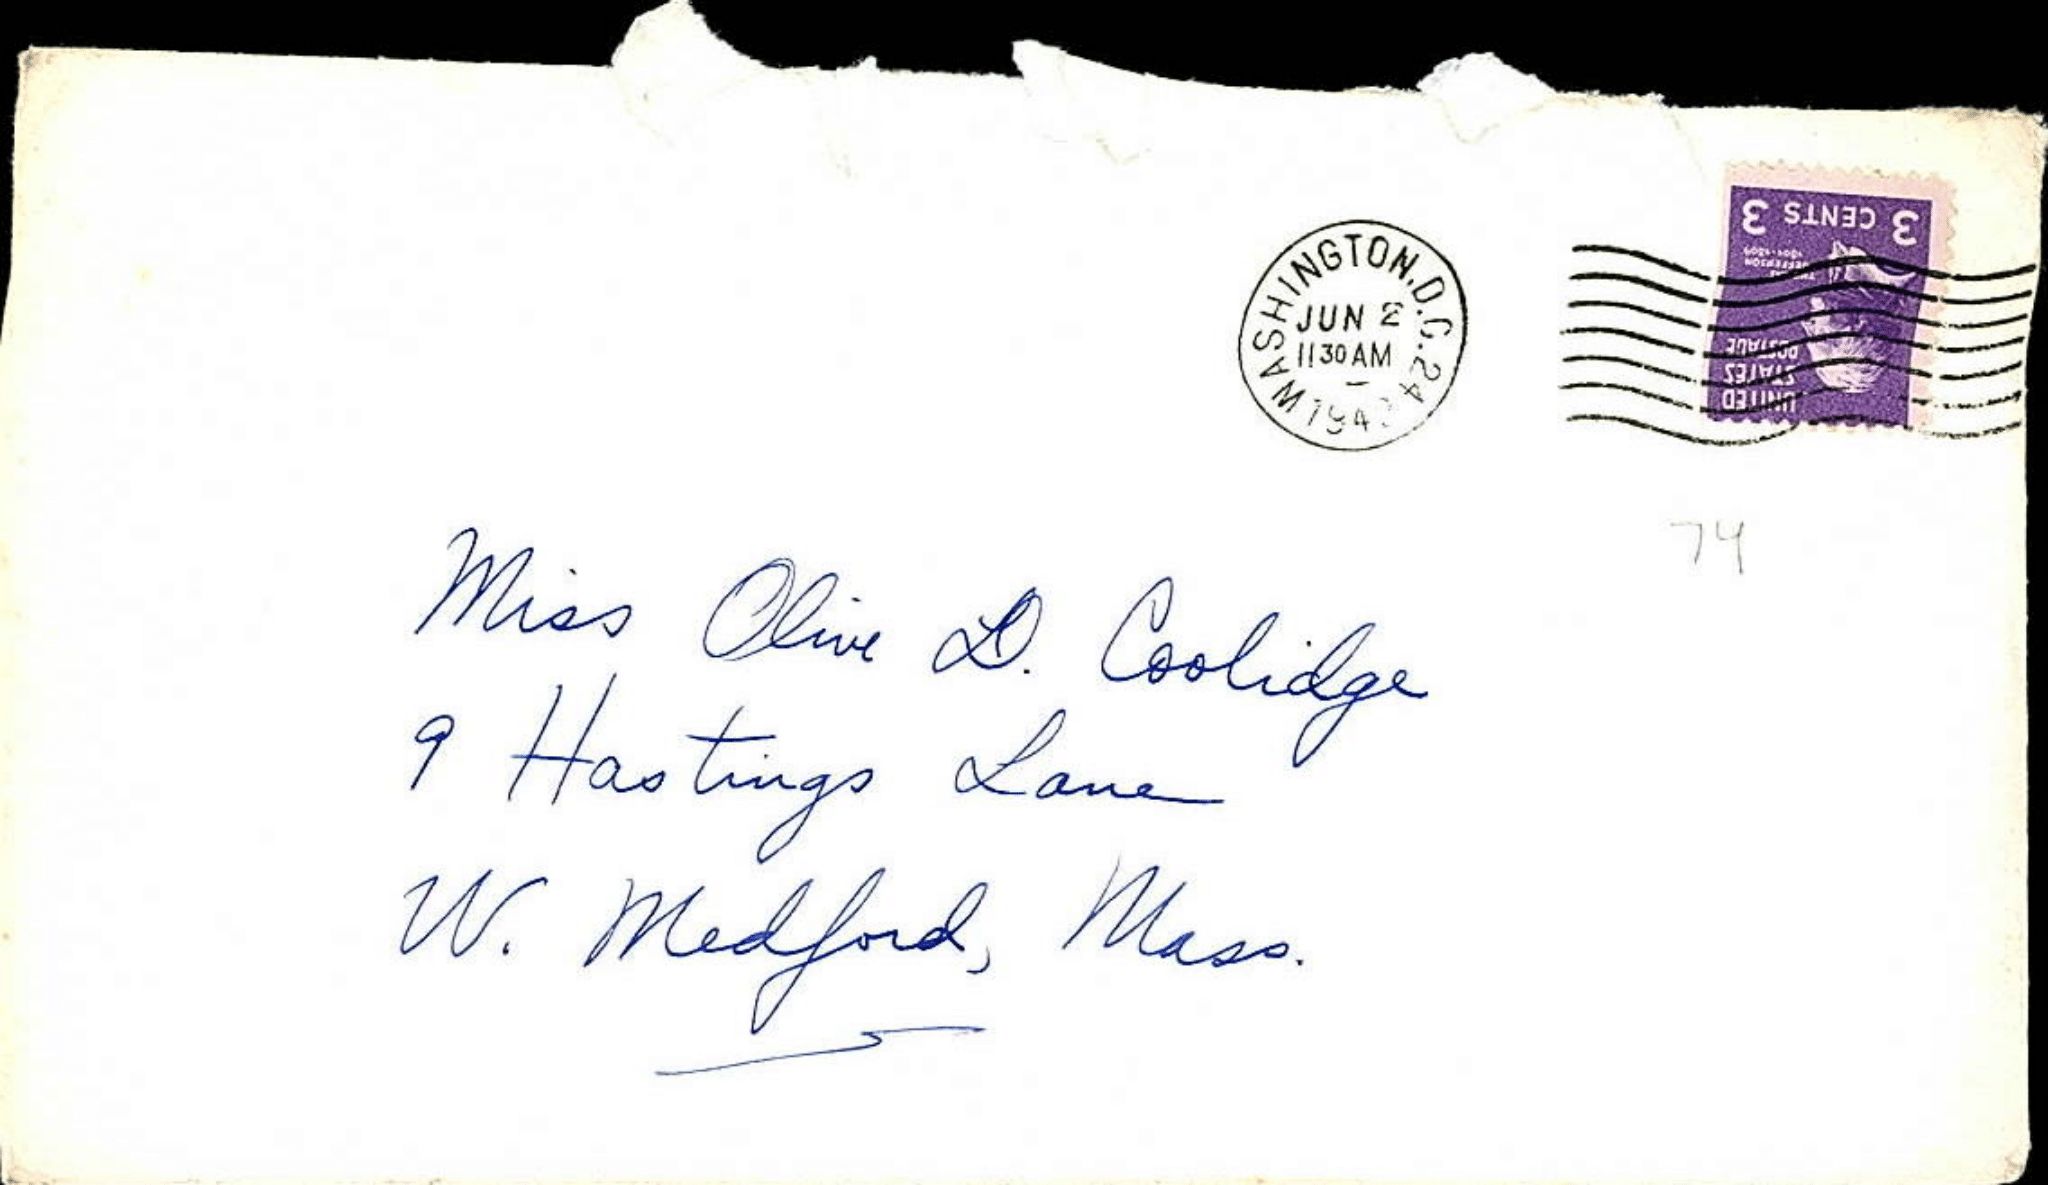 WASHINGTON, D.C. 24
JUN 2
11 30 AM
3 CENTS 3
THOMAS
JEFFERSON
1801-1809
UNITED
STATES
POSTAGE
74
Miss Olive D. Coolidge
9 Hastings Lane
W. Medford, Mass.